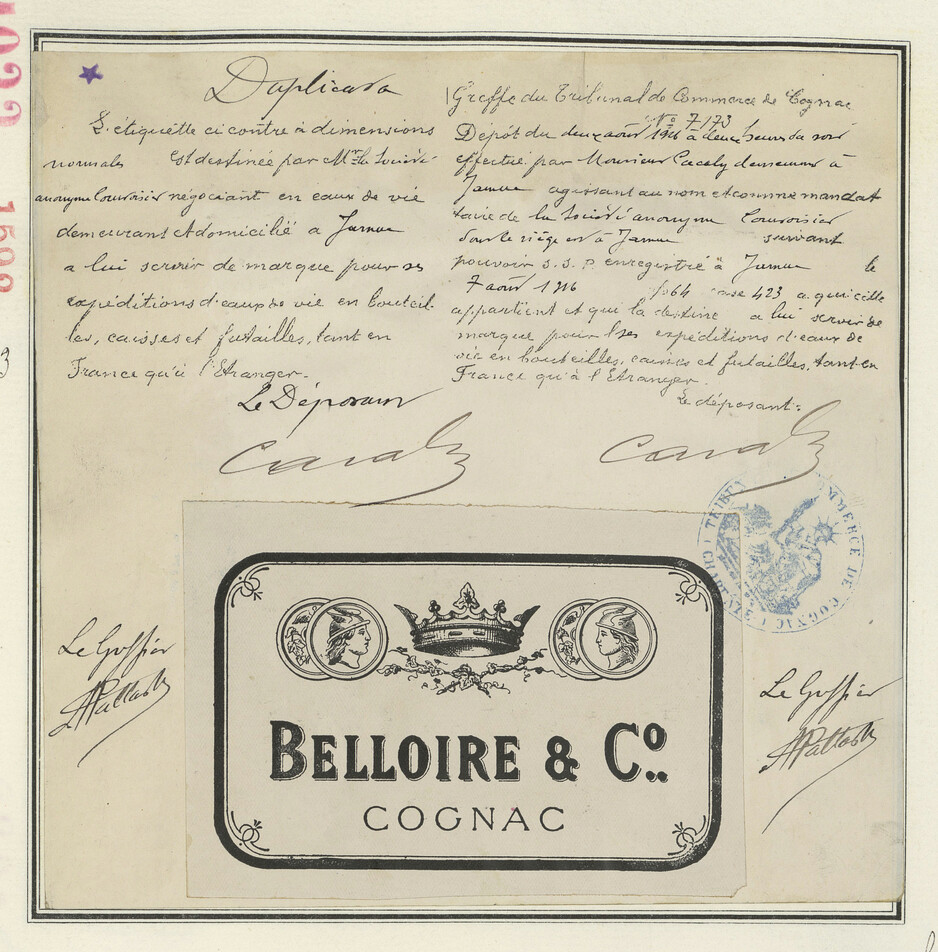 Duplicata
L'étiquette ci contre à dimensions
normales est destinée par Mr la Société
anonyme Courvoisier négociant en eaux de vie
demeurant et domicilié à Jarnac
a lui servir de marque pour ses
expéditions d'eaux de vie en bouteil-
les, caisses et futailles, tant en
France qu'à l'Etranger.
Le Déposant
Greffe du Tribunal de Commerce de Cognac
No 7173
Dépot du deux aout 1916 à deux heures du soir
effectué par Monsieur demeurant à
Jarnac agissant au nom et comme mandat
taire de la Société anonyme Courvoisier
dont le siège est à Jarnac suivant
pouvoir S.S.P. enregistré à Jarnac le
7 aout 1916 fo 64 case 423 a qui cette
appartient et qui la destine a lui servir de
marque pour ses expéditions d'eaux de
vie en bouteilles, caisses et futailles, tant en
France qu'à l'Etranger.
Le déposant:
TRIBUNAL COMMERCE DE COGNAC
Le Greffier
BELLOIRE & Co.
COGNAC
Le Greffier